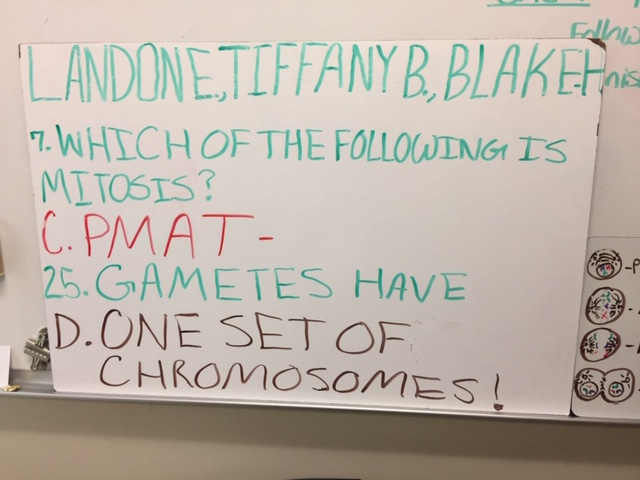 LANDON E., TIFFANY B., BLAKE H
7. WHICH OF THE FOLLOWING IS
MITOSIS?
C. PMAT -
25. GAMETES HAVE
D. ONE SET OF
CHROMOSOMES!
Follow